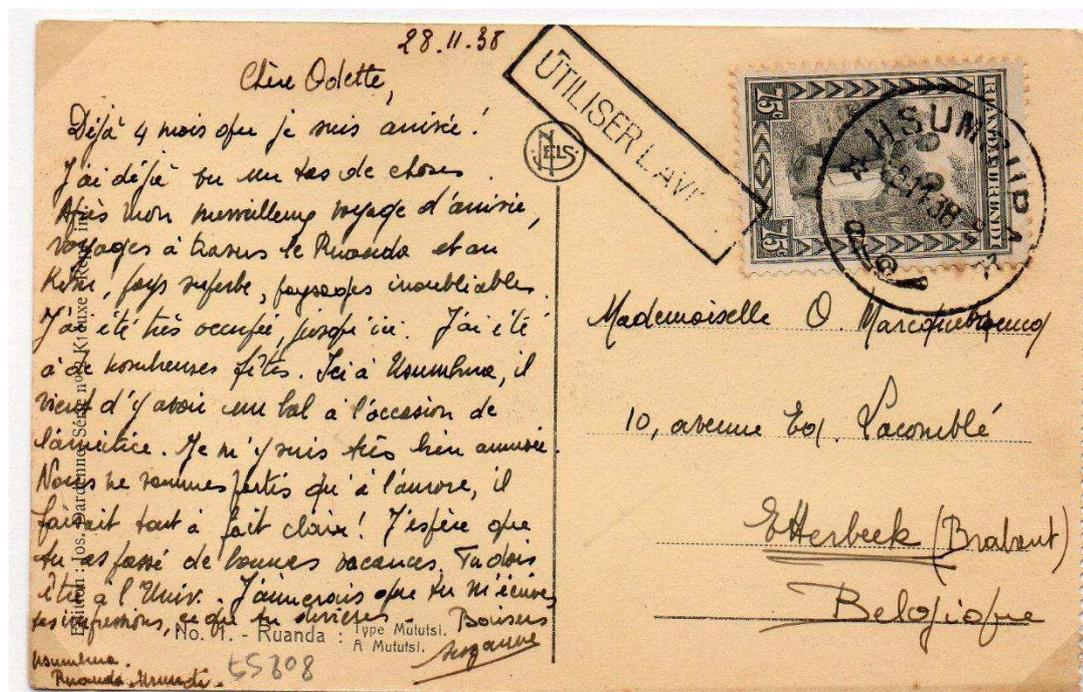 28.11.38
Chère Odette,
Déjà 4 mois que je suis arrivée!
J'ai déjà vu un tas de choses.
Après mon merveilleux voyage d'arrivée,
voyages à travers le Ruanda et au
Kivu, pays superbe, paysages inoubliables.
J'ai été très occupée, jusqu'ici. J'ai été
à de nombreuses fêtes. Ici à Usumbura, il
vient d'y avoir un bal à l'occasion de
l'armistice. Je m'y suis très bien amusée.
Nous ne sommes partis qu'à l'aurore, il
faisait tout à fait claire! J'espère que
tu as passé de bonnes vacances. Tu dois
être à l'Univ. J'aimerais que tu m'écrives
tes impressions, ce que tu deviens. Baisers
Suzanne
Usumbura.
Ruanda-Urundi.
No. 1. - Ruanda : Type Mututsi.
A Mututsi.
55808
Edition : Jos. Dardenne, Série no
NELS
UTILISER L'AVI
RUANDA URUNDI
75c
75c
USUMBURA
38
Mademoiselle O
10, avenue Ed. Lacomblé
Etterbeek (Brabant)
Belgique